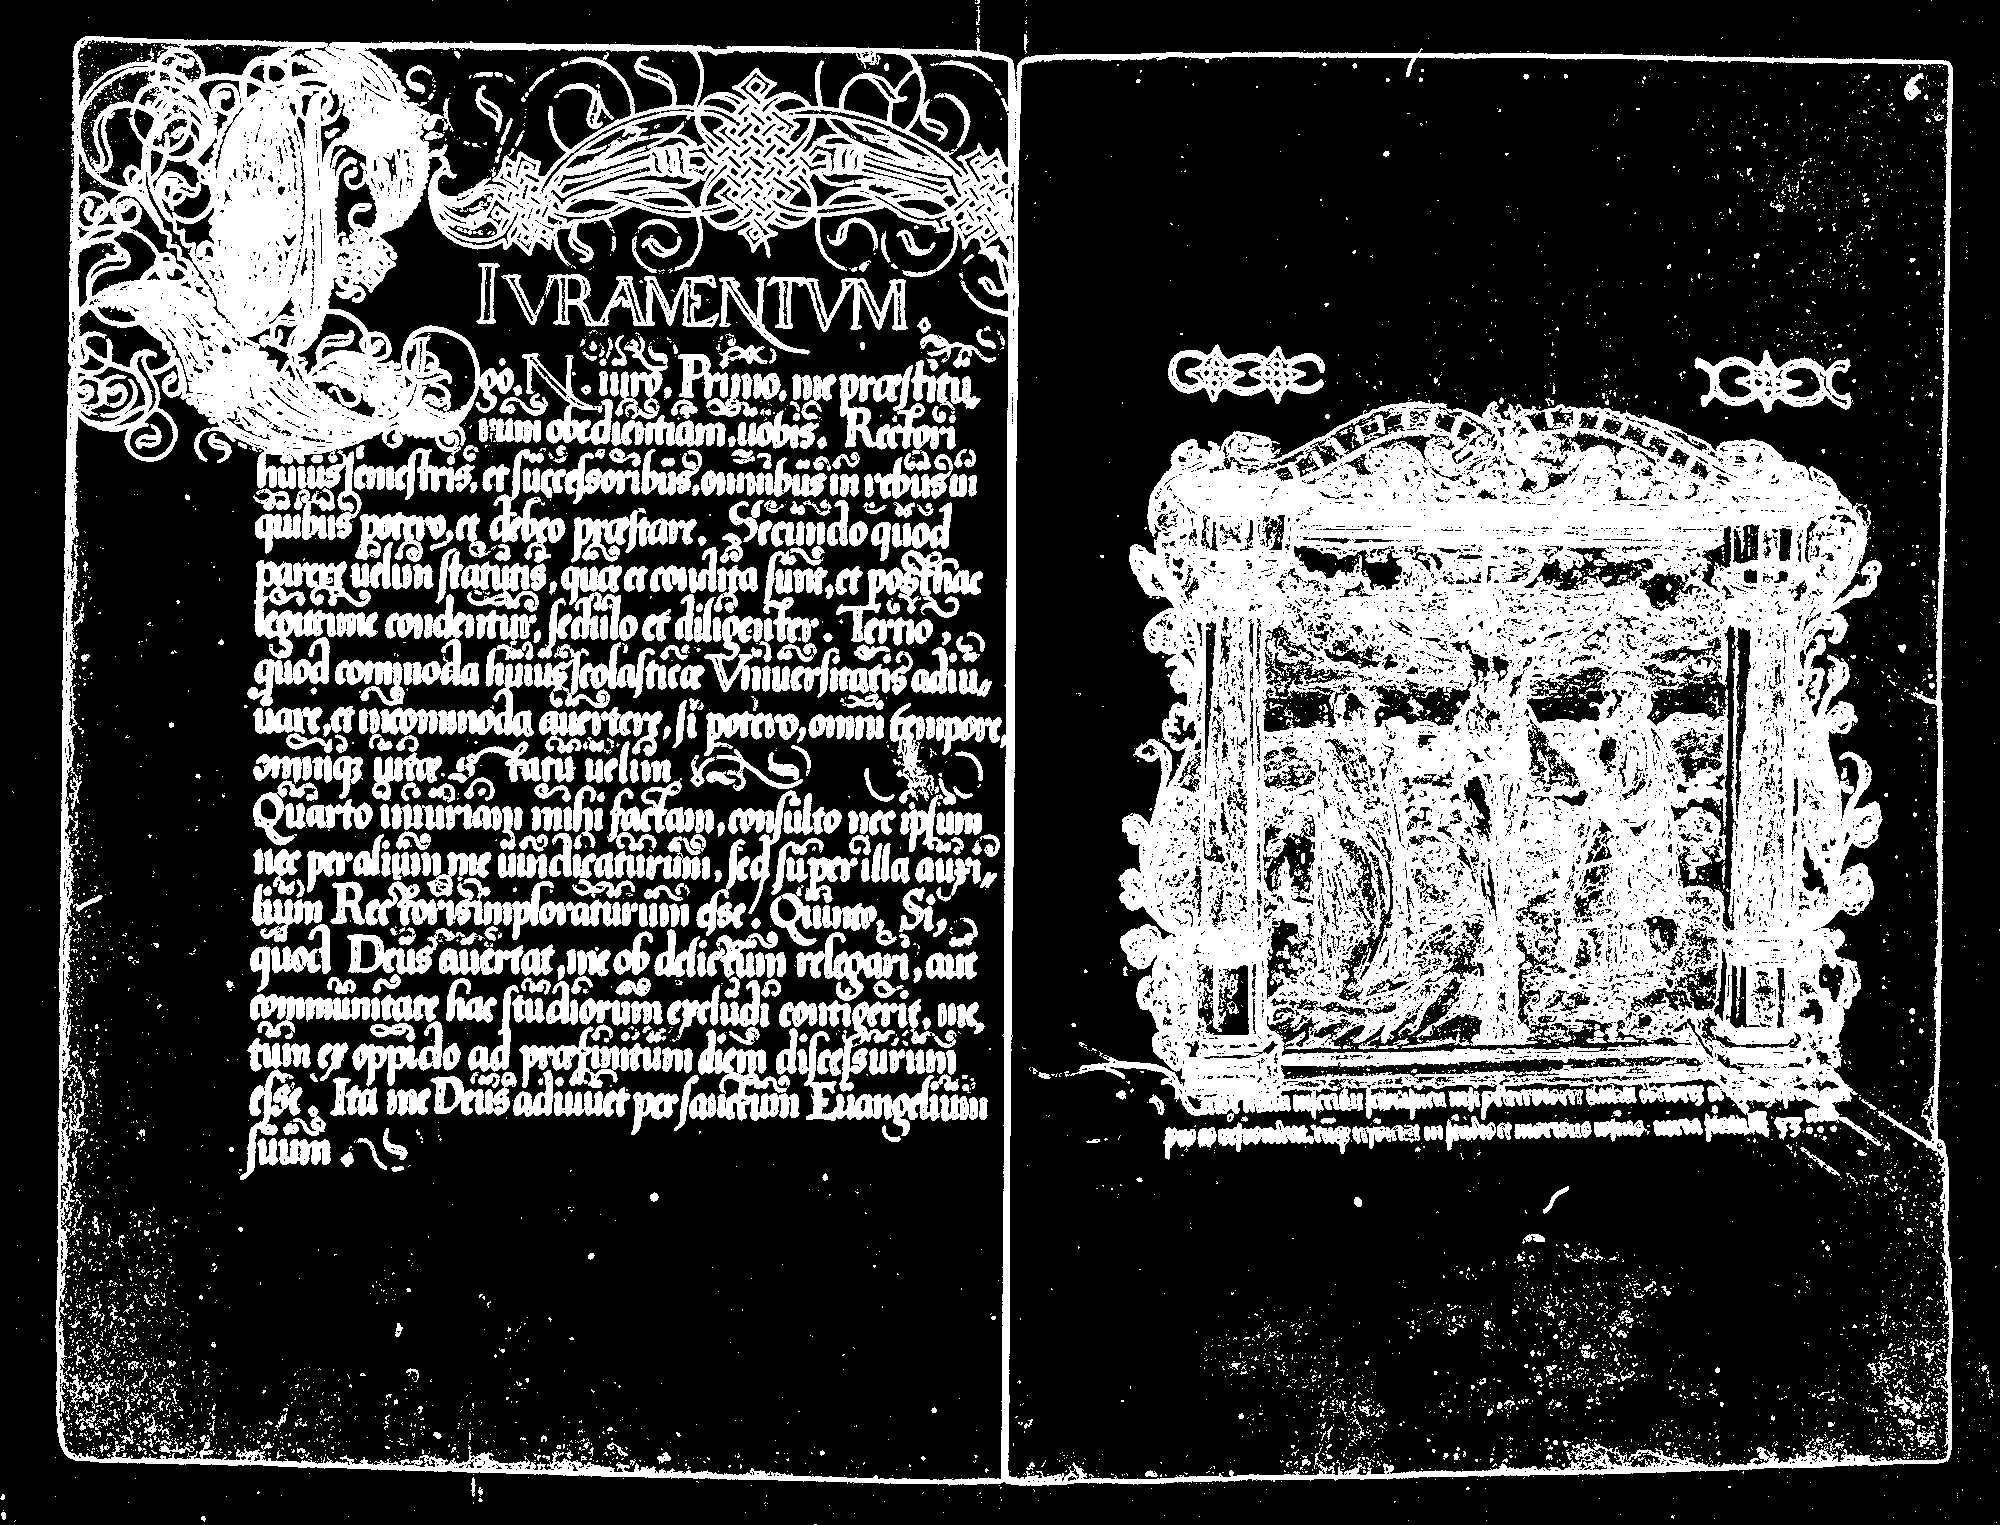 IVRAMENTVM.
Ego. N. iuro. Primo, me præstitu,
rum obedientiam, uobis. Rectori
huius semestris, et successoribus, omnibus in rebus in
quibus potero, et debeo præstare. Secundo quod
parere uelim statutis, quæ et condita sunt, et posthac
legitime condentur, sedulo et diligenter. Tertio,
quod commoda huius scolasticæ Vniuersitatis adiu,,
uare, et incommoda auertere, si potero, omni tempore,
omniq; uitæ statu uelim
Quarto iniuriam mihi factam, consulto nec ipsum
nec per alium me uindicaturum, sed super illa auxi,,
lium Rectoris imploraturum esse. Quinto, Si,
quod Deus auertat, me ob delictum relegari, aut
communitate hac studiorum excludi contigerit, me,
tum ex oppido ad præfinitum diem discessurum
esse. Ita me Deus adiuuet per sanctum Euangelium
suum.